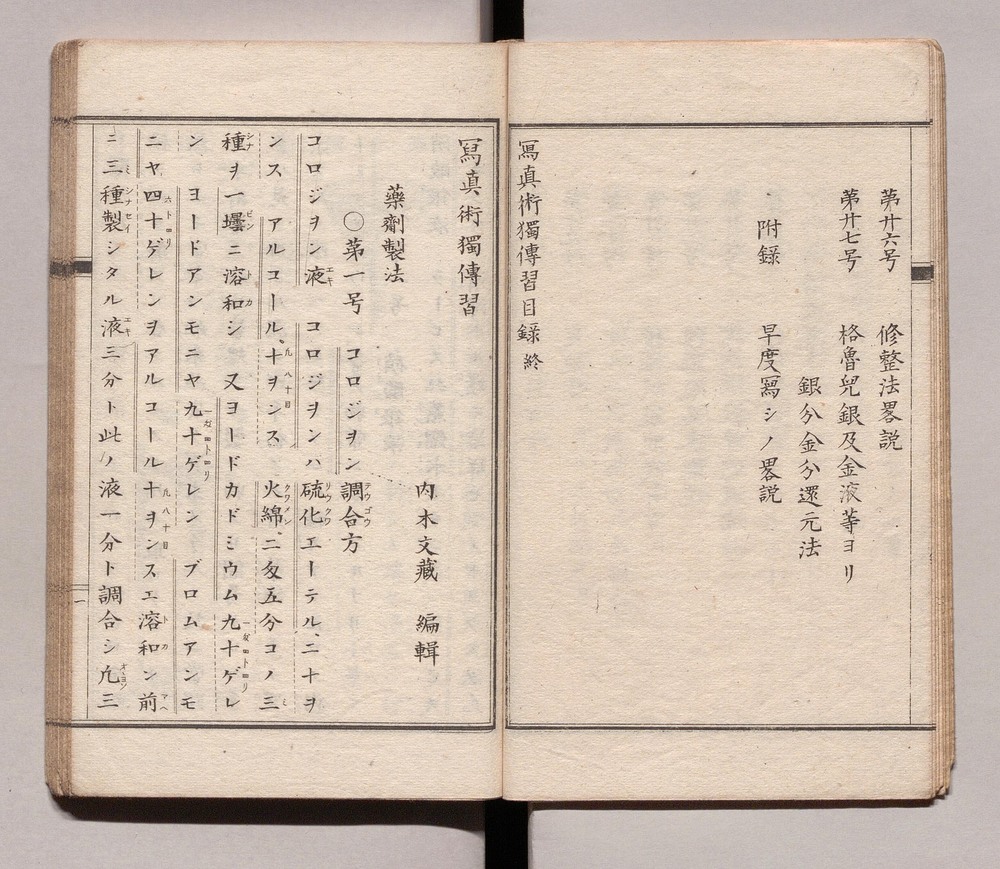 第廿六号　修整法畧説
第廿七号　格魯児銀及金液等ヨリ
銀分金分還元法
附録　早度寫シノ畧説
寫真術獨傳習目録終
寫真術獨傳習
内木文藏　編輯
藥劑製法
〇第一号　コロジヲン調合方
コロジヲン液　コロジヲンハ硫化エーテル、二十ヲ
ンス　アルコール、十ヲンス　火綿、二匁五分コノ三
種ヲ一壜ニ溶和シ　又ヨードカドミウム九十ゲレ
ン　ヨードアンモニヤ九十ゲレン　ブロムアンモ
ニヤ四十ゲレンヲアルコール十ヲンスエ溶和ン前
ニ三種製シタル液三分ト此ノ液一分ト調合シ凢三
一